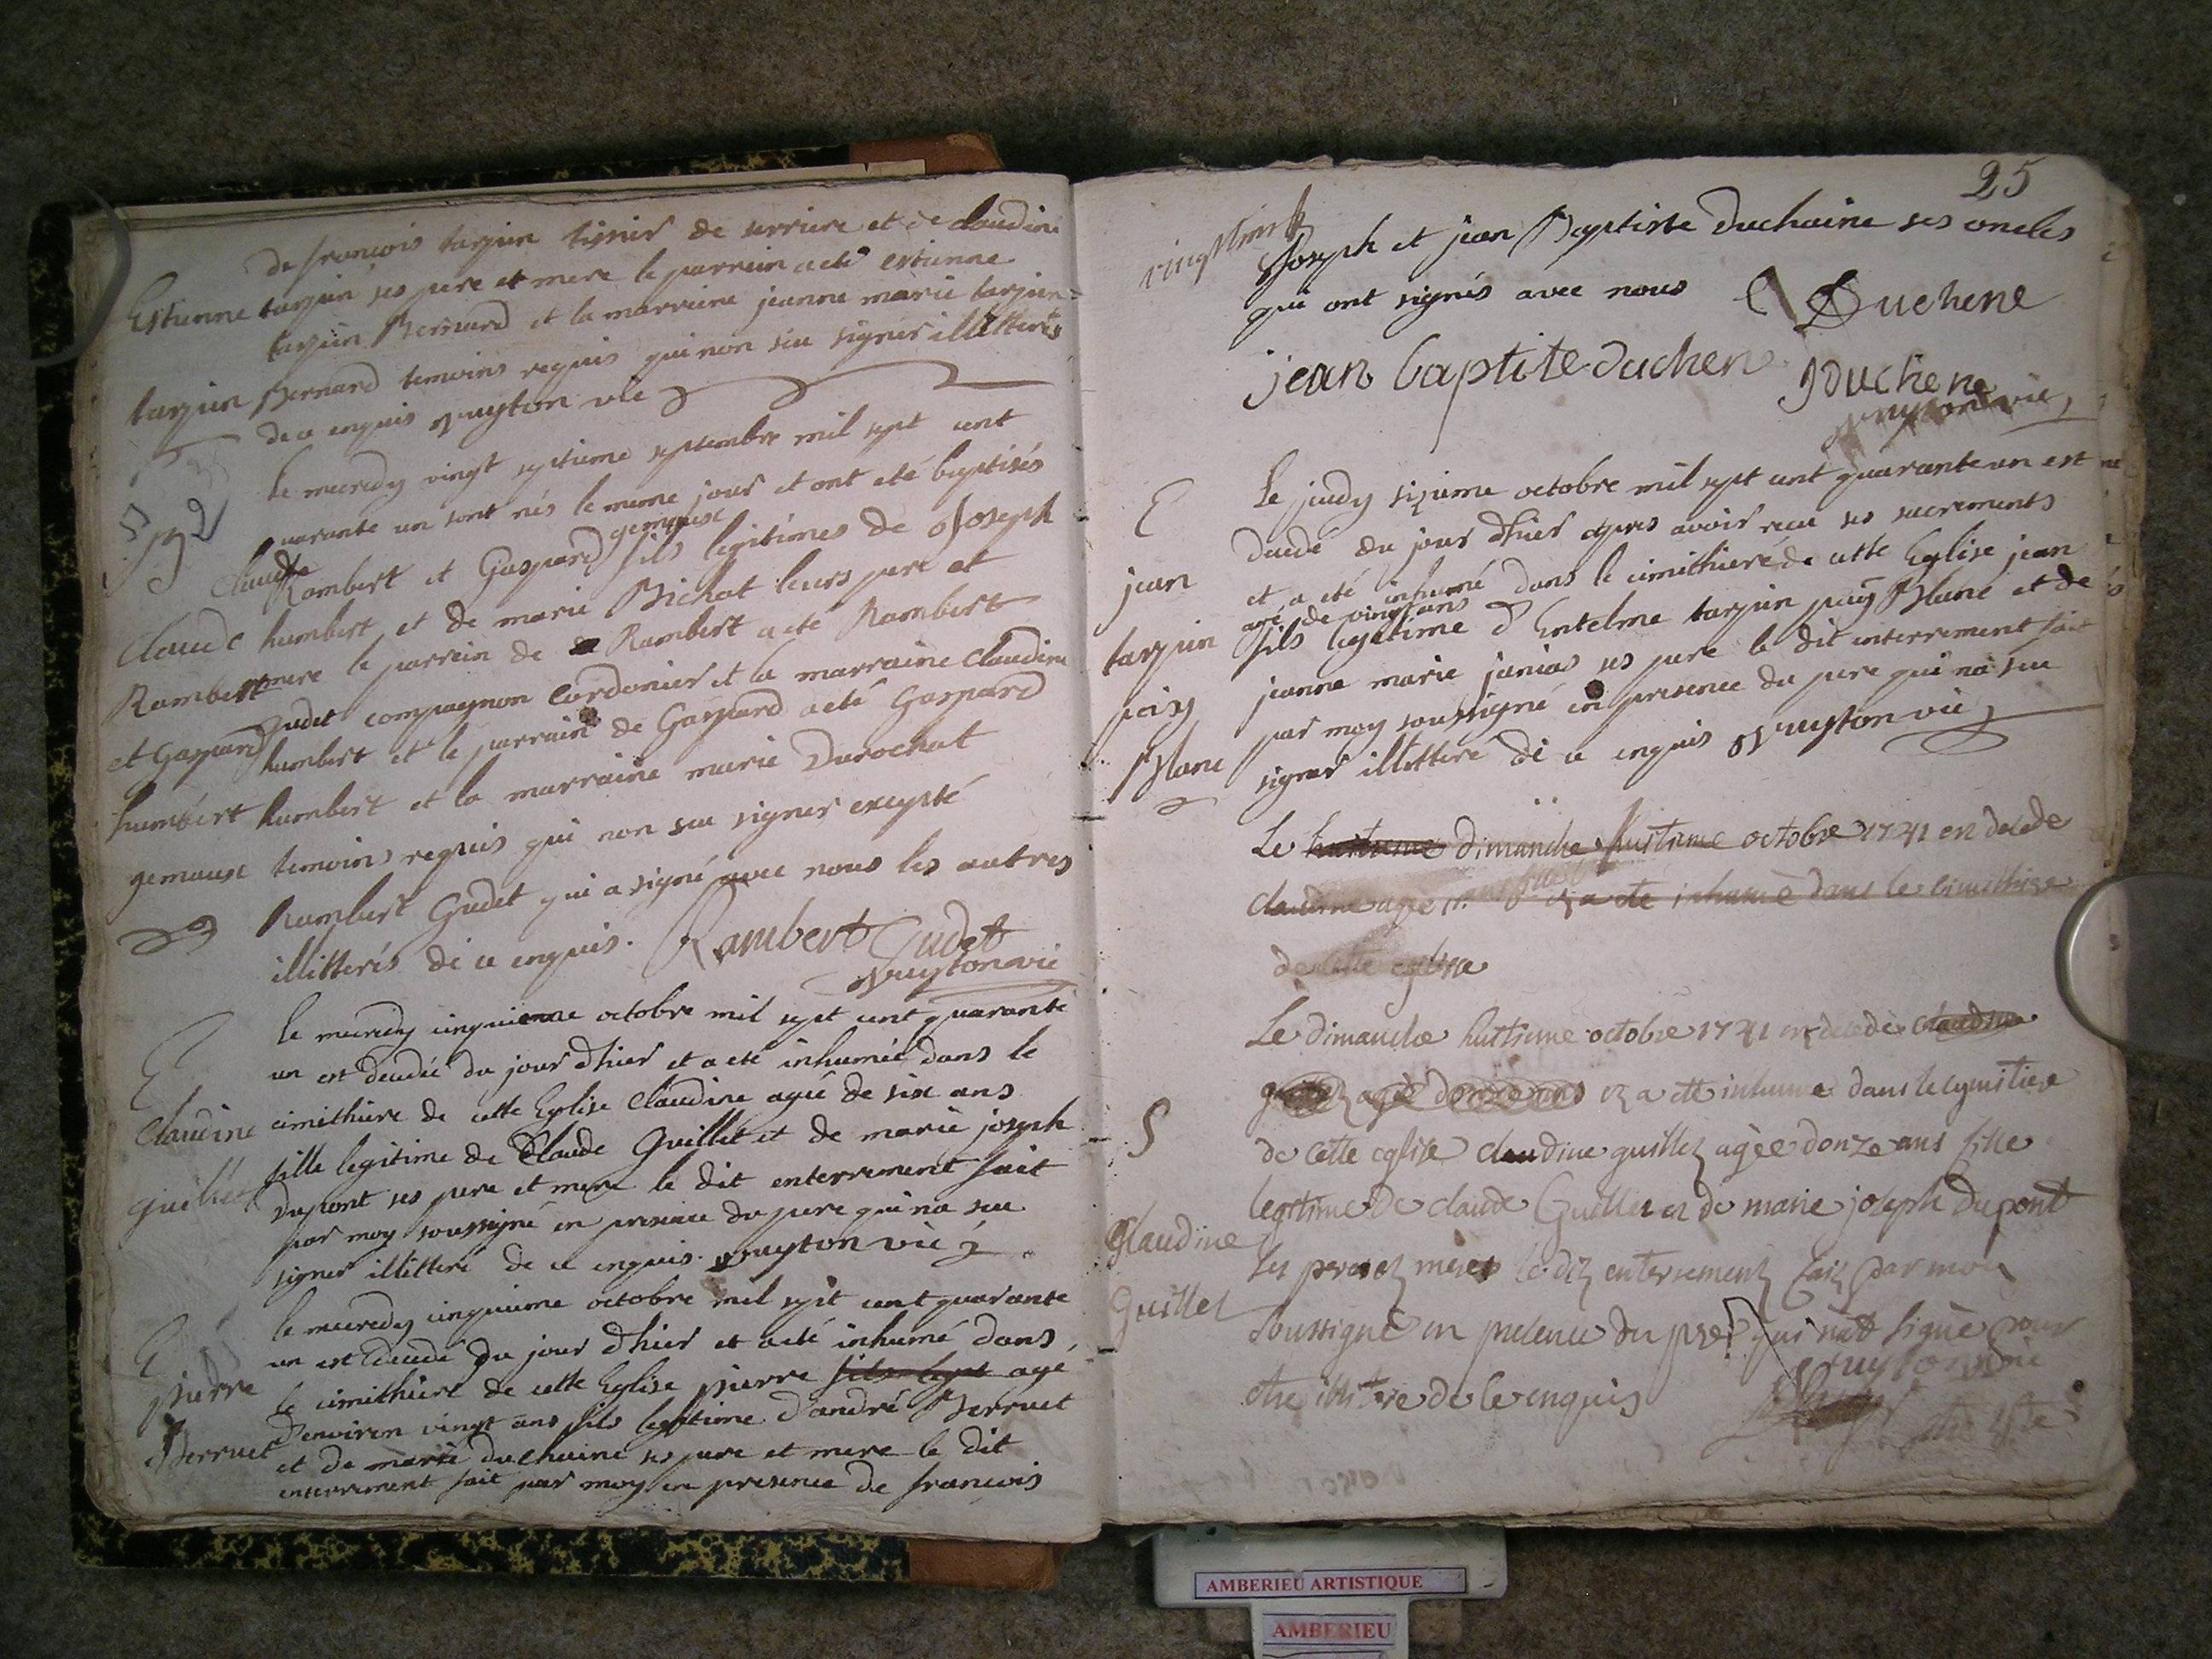 de francois tarpin tissier de serriere et de claudine
Estienne tarpin ses pere et mere le parrein a eté estienne
tarpin Bernard et la marraine jeanne marie tarpin
tarpin Bernard temoins requis qui non seu signer illitterés
de ce enquis vuyton vic
le mercredy vingt septieme septembre mil sept cent
quarante un sont nés le meme jour et ont eté baptisés
claude
Rambert et Gaspard gemeaux fils legitimes de Joseph
Claude humbert et de marie Bichat leurs pere et
Rambert mere le parrein de Rambert a eté Rambert
Gudet compagnon Cordonier et la marraine Claudine
et Gaspard humbert et le parrain de Gaspard a eté Gaspard
humbert humbert et la marraine marie Durochat
gemeaux temoins requis qui non seu signer excepté
Rambert Gudet qui a signé avec nous les autres
illitterés de ce enquis. Rambert Gudet
vuyton vic
le mercredy cinquieme octobre mil sept cent quarante
un est decedée du jour dhier et a eté inhumée dans le
Claudine cimithiere de cette Eglise Claudine agée de six ans
fille legitime de Claude Guillet et de marie joseph
guillet Dupont ses pere et mere le dit enterrement fait
par moy soussigné en presence du pere qui na seu
signer illittere de ce enquis. vuyton vic
le mercredy cinquieme octobre mil sept cent quarante
un est decedé du jour dhier et a eté inhumé dans
pierre le cimithiere de cette Eglise pierre fils legt agé
d'environ vingt ans fils legitime d'andré Berruet
Berruet et de marie duchaine ses pere et mere le dit
enterrement fait par moy en presence de francois
25
vingt cinq
Joseph et jean Baptiste Duchaine ses oncles
qui ont signés avec nous Duchene
jean baptite duchen Jduchene
vuyton vic
Le jeudy sixieme octobre mil sept cent quarante un est
E decedé du jour dhier apres avoir recu ses sacrements
jean et a eté inhumé dans le cimithiere de cette Eglise jean
agé de vingt ans
tarpin fils legitime d'Entelme tarpin paiy Blanc et de
jeanne marie janias ses pere le dit interrement fait
paisy par moy soussigné en presence du pere qui na seu
Blanc signer illittere de ce enquis vuyton vic
Le huitieme dimanche huitieme octobre 1741 et decede
claudine agée et a eté inhumé dans le cimithiere
de cette eglise
Le dimanche huitieme octobre 1741 et decedé claudine
et a eté inhumé dans le cymitiere
S de cette eglise claudine guillet agée donze ans fille
legitime de claude Guillet et de marie joseph Dupont
Claudine ses pere et meres le dit enterrement fait par moi
Guillet soussigné en presence du pere qui n'at signé pour
etre illittere de ce enquis vuyton vic
AMBERIEU ARTISTIQUE
AMBERIEU